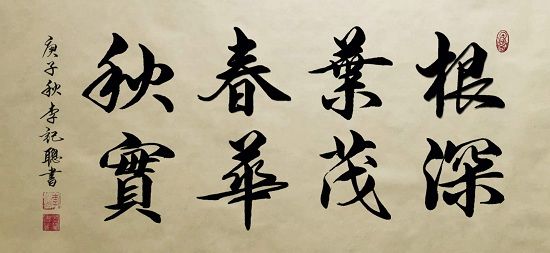 根深
葉茂
春華
秋實
庚子秋李記聰書